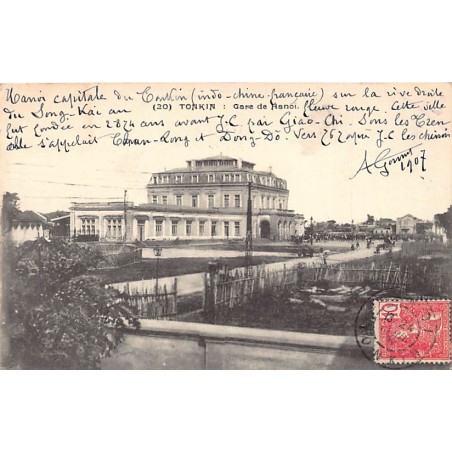 Hanoi capitale du Tonkin (indo-chine-française) sur la rive droite
du Song-Kai au fleuve rouge. Cette ville
(20) TONKIN : Gare de Hanoi.
fut fondée en 2874 ans avant J.C par Giao-Chi. Sous les
elle s'appelait Long et Dong-Dô. Vers 262 J.C les
1907